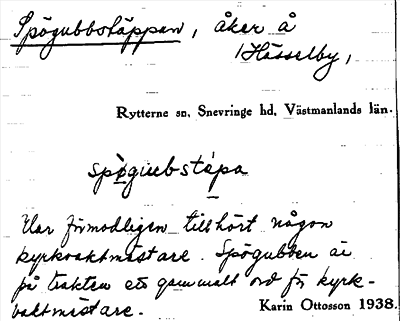 Spögubbstäppan, åker å
Hässelby,
Rytterne sn. Snevringe hd. Västmanlands län.
spögubstäpa
Har förmodligen tillhört någon
kyrkvaktmästare. Spögubben är
på trakten ett gammalt ord för kyrk-
vaktmästare.
Karin Ottosson 1938.